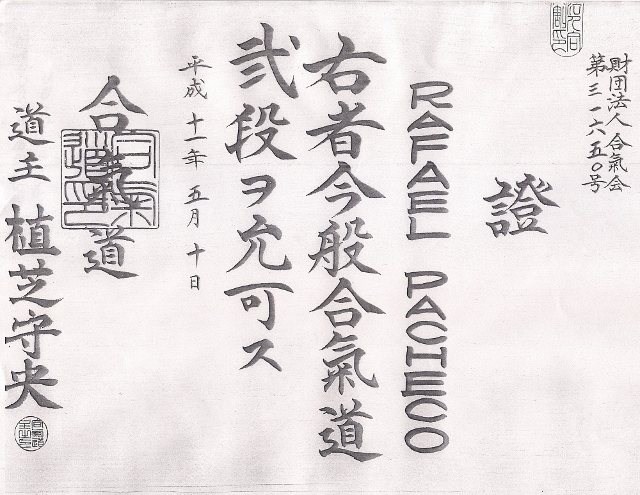 財団法人 合氣会
第三一六五〇号
證
RAFAEL PACHECO
右者今般合氣道
弐段ヲ允可ス
平成 十一年 五月 十日
合氣道
道主 植芝守央